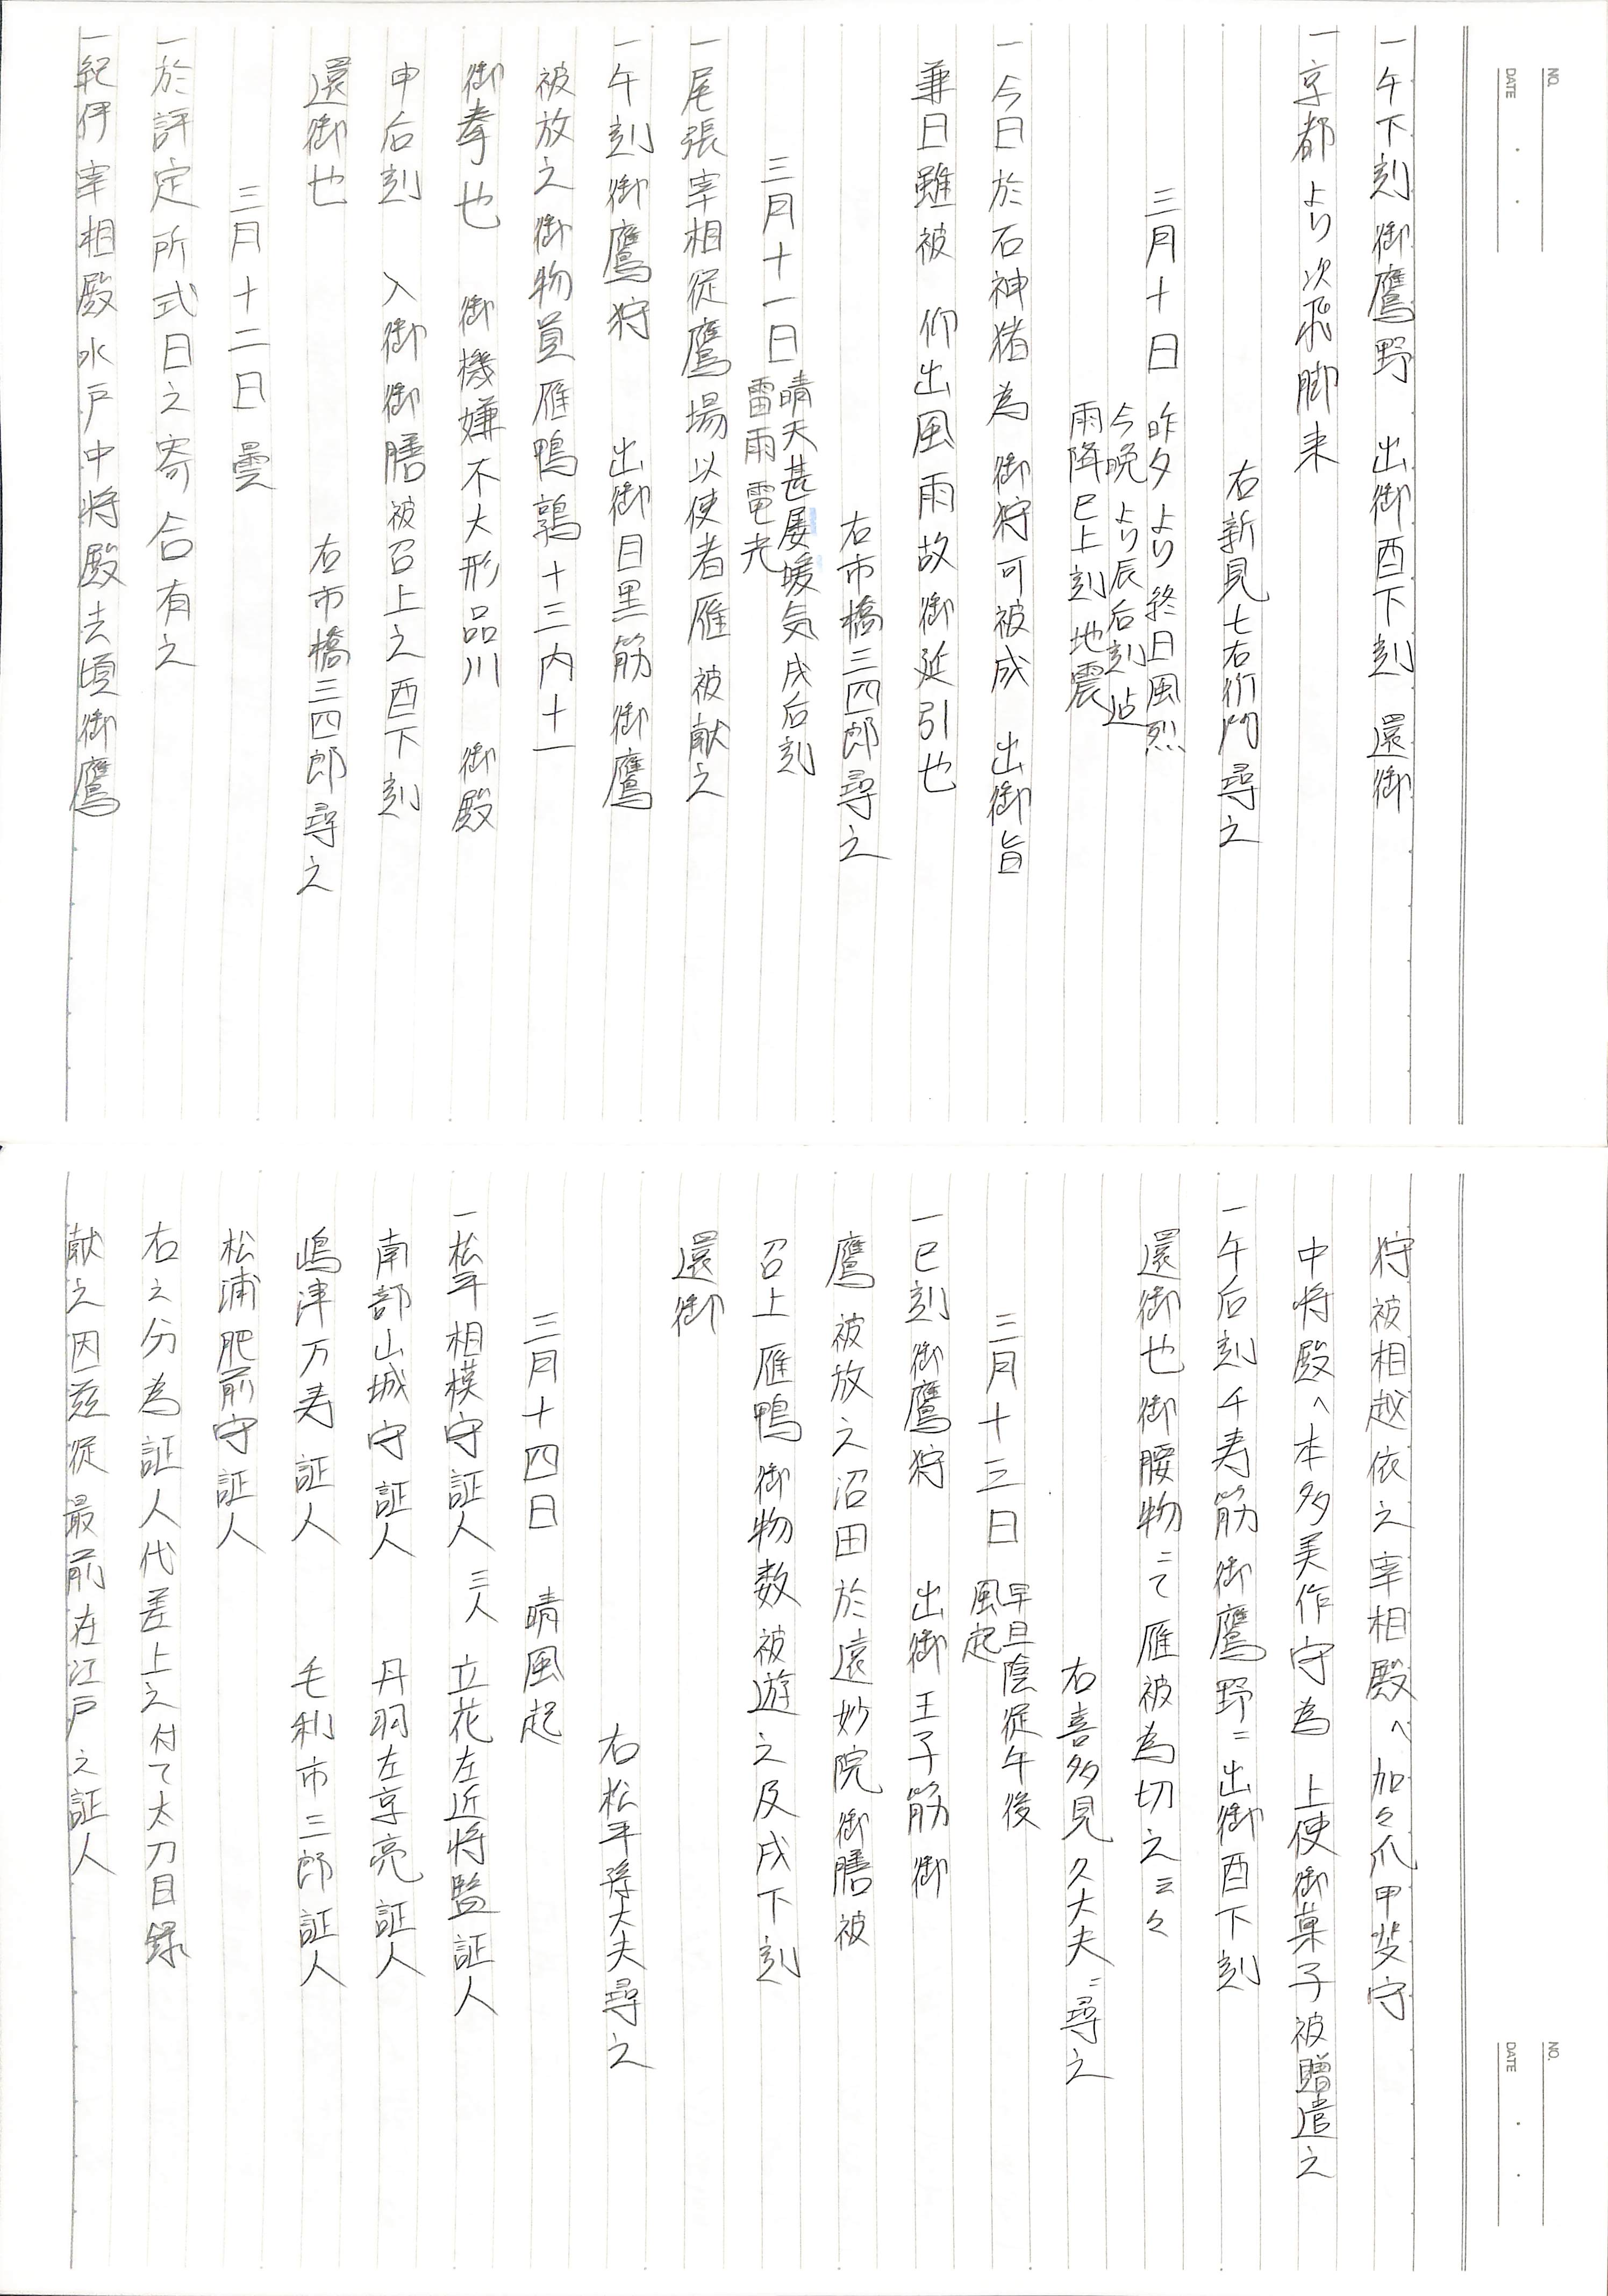 NO.
DATE
一午下刻 御鷹野 出御酉下刻 還御
一京都より次飛脚来
右新見七右衛門尋之
三月十日 昨夕より終日風烈
今晩より辰后刻迠
雨降巳上刻地震
一今日於石神猪為 御狩可被成 出御旨
兼日雖被 仰出風雨故御延引也
右市橋三四郎尋之
三月十一日 晴天甚屡暖気戌后刻
雷雨電光
一尾張宰相従鷹場以使者雁被献之
一午刻御鷹狩 出御目黒筋御鷹
被放之御物員雁鴨鶉十三内十一
御拳也 御機嫌不大形品川 御殿
申后刻 入御御膳被召上之酉下刻
還御也
右市橋三四郎尋之
三月十二日 曇
一於評定所式日之寄合有之
一紀伊宰相殿水戸中将殿去頃御鷹
NO.
DATE
狩被相越依之宰相殿へ加々爪甲斐守
中将殿へ本多美作守為 上使御菓子被贈遣之
一午后刻千寿筋御鷹野ニ出御酉下刻
還御也御腰物ニて雁被為切之云々
右喜多見久大夫ニ尋之
三月十三日 早旦陰従午後
風起
一巳刻御鷹狩 出御王子筋御
鷹被放之沼田於遠妙院御膳被
召上雁鴨御物数被遊之及戌下刻
還御
右松平孫大夫尋之
三月十四日 晴風起
一松平相模守証人 三人 立花左近将監証人
南部山城守証人 丹羽左京亮証人
嶋津万寿証人 毛利市三郎証人
松浦肥前守証人
右之分為証人代差上之付て太刀目録
献之因茲従最前在江戸之証人